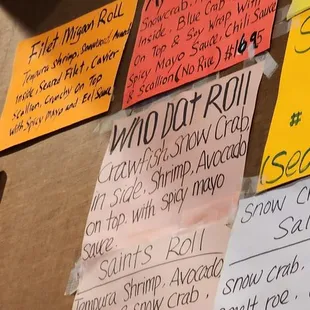 Filet Mignon Roll
Tempura Shrimp, Snowcrab, Avocado
inside, Seared Filet, Caviar
Scallion, Crunchy on Top
with Spicy Mayo and Eel Sauce
Snowcrab,
Inside, Blue Crab
on Top & Soy Wrap with
Spicy Mayo Sauce, Chili Sauce
& Scallion (No Rice) $16.95
WHO Dat Roll
Crawfish, Snow Crab,
in side, Shrimp, Avocado
on top. with spicy mayo
sauce.
Saints Roll
Tempura Shrimp, Avocado
& snow Crab,
S
#
(Sea
Snow C
Sal
Snow crab.
roe,